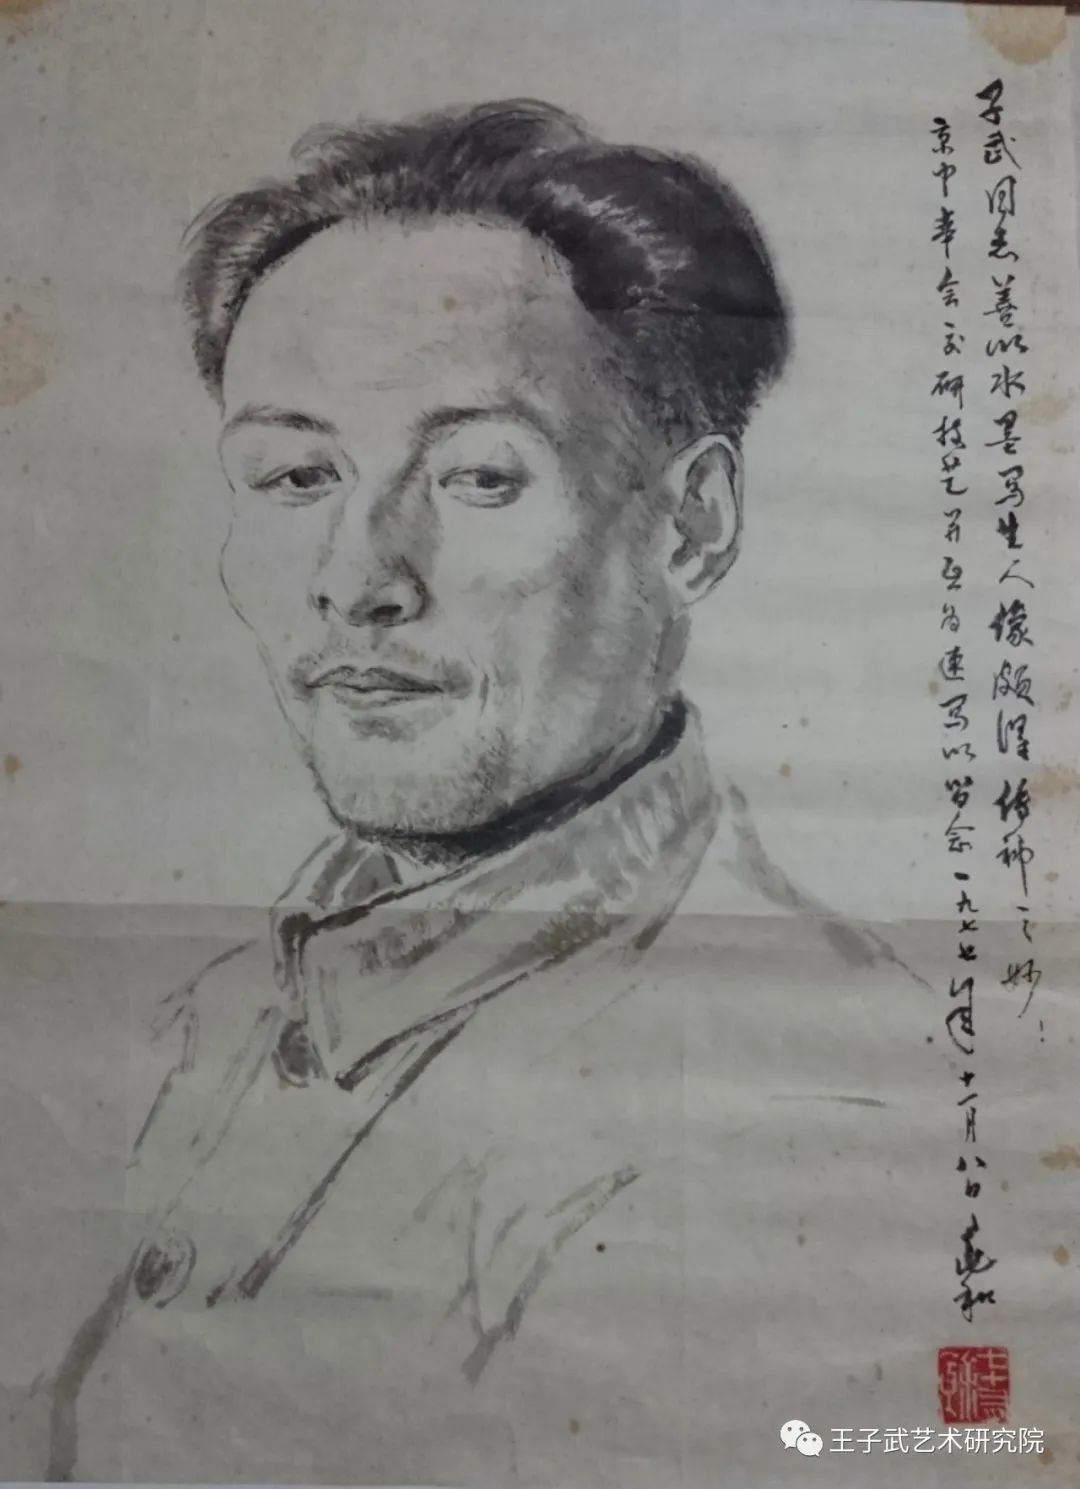 子武同志善以水墨写生人像颇得传神之妙！
京中幸会交研技艺并正为速写以留念一九七七年十一月八日蓬和
王子武艺术研究院